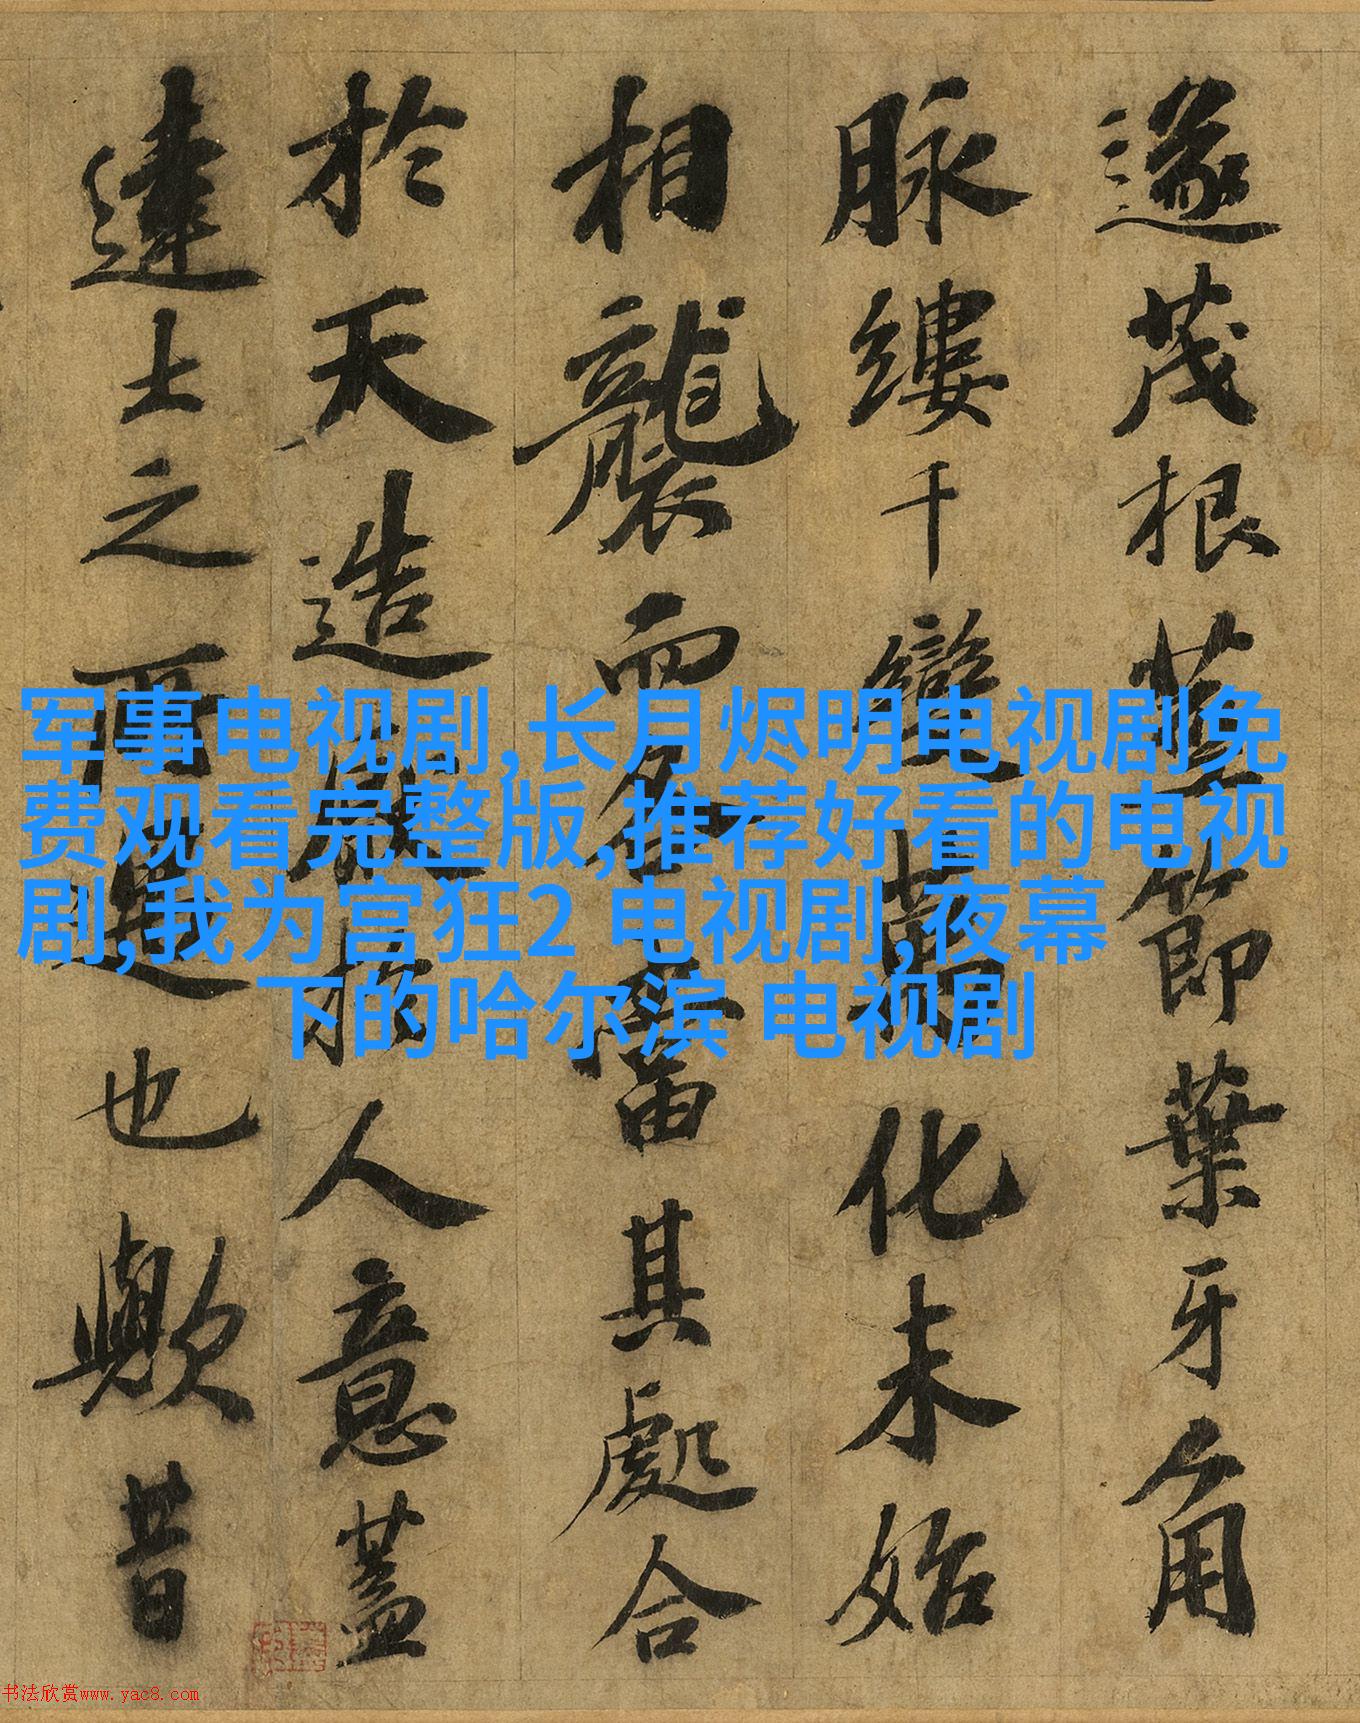 遂茂根莖節葉牙角
脉縷千變萬化未始
相襲而各當其處合
於天造厭於人意蓋
達士之所也歟昔
军事电视剧,长月烬明电视剧免
费观看完整版,推荐好看的电视
剧,我为宫狂2 电视剧,夜幕
下的哈尔滨 电视剧
书法欣赏www.yac8.com